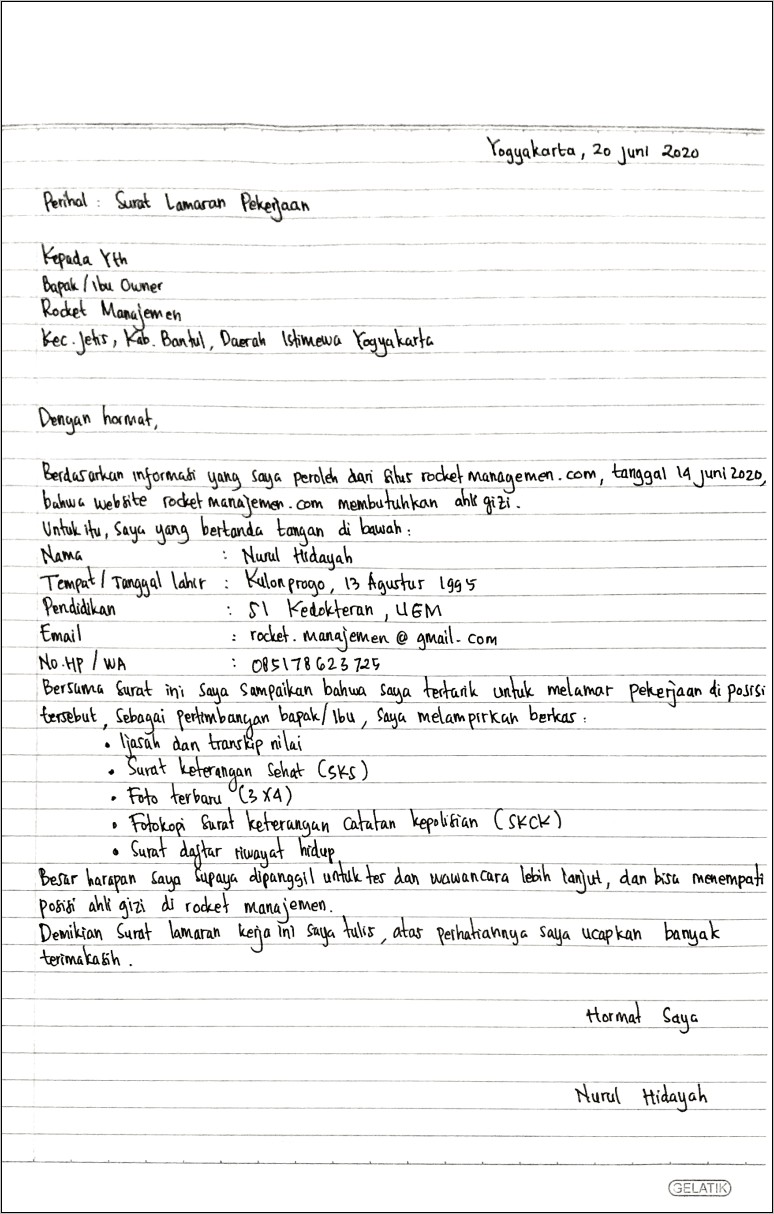 Yogyakarta, 20 juni 2020
Perihal : Surat Lamaran Pekerjaan
Kepada Yth
Bapak/Ibu Owner
Rocket Manajemen
Kec. Jetis, Kab. Bantul, Daerah Istimewa Yogyakarta
Dengan hormat,
Berdasarkan informasi yang saya peroleh dari situs rocket managemen.com, tanggal 14 juni 2020,
bahwa website rocket manajemen.com membutuhkan ahli gizi.
Untuk itu, Saya yang bertanda tangan di bawah :
Nama : Nurul Hidayah
Tempat/Tanggal lahir : Kulonprogo, 13 Agustur 1995
Pendidikan : S1 Kedokteran, UGM
Email : rocket.manajemen@gmail.com
No.HP / WA : 085178623725
Bersama surat ini saya sampaikan bahwa saya tertarik untuk melamar pekerjaan di posisi
tersebut, sebagai pertimbangan bapak/Ibu, saya melampirkan berkas :
• Ijasah dan transkip nilai
• Surat keterangan sehat (SKS)
• Foto terbaru (3x4)
• Fotokopi surat keterangan catatan kepolisian (SKCK)
• Surat daftar riwayat hidup
Besar harapan saya supaya dipanggil untuk tes dan wawancara lebih lanjut, dan bisa menempati
posisi ahli gizi di rocket manajemen.
Demikian surat lamaran kerja ini saya tulis, atas perhatiannya saya ucapkan banyak
terimakasih.
Hormat Saya
Nurul Hidayah
GELATIK